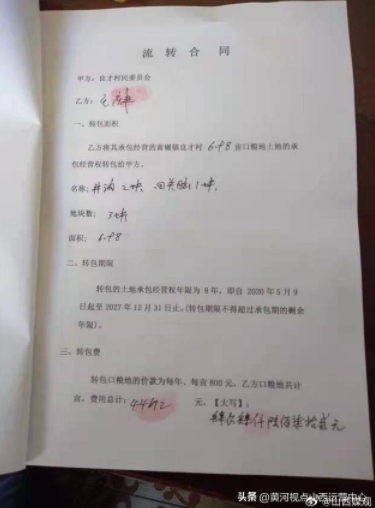 流转合同
甲方：良才村民委员会
乙方：
一、转包面积
乙方将其承包经营的黄崾镇良才村 6.98 亩口粮地土地的承
包经营权转包给甲方。
名称：井沟2块，回关脑1块，
地块数：3块
面积：6.98
二、转包期限
转包的土地承包经营权年限为 8 年，即自 2020 年 5 月 9
日起至 2027 年 12 月 31 日止。(转包期限不得超过承包期的剩余
年限)。
三、转包费
转包口粮地的价款为每年、每亩 800 元，乙方口粮地共计
亩，费用总计：44672 元，【大写】：
肆万肆仟陆佰柒拾贰元
头条@黄河视点山西运营中心
@山西媒观